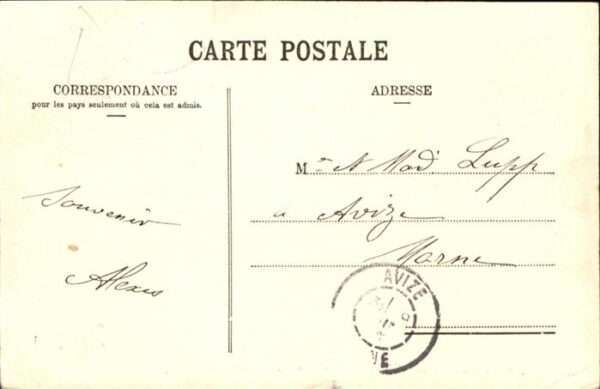 CARTE POSTALE
CORRESPONDANCE
pour les pays seulement où cela est admis.
Souvenir
Alexis
ADRESSE
M r et Mad. Lupp
a Avize
Marne
AVIZE